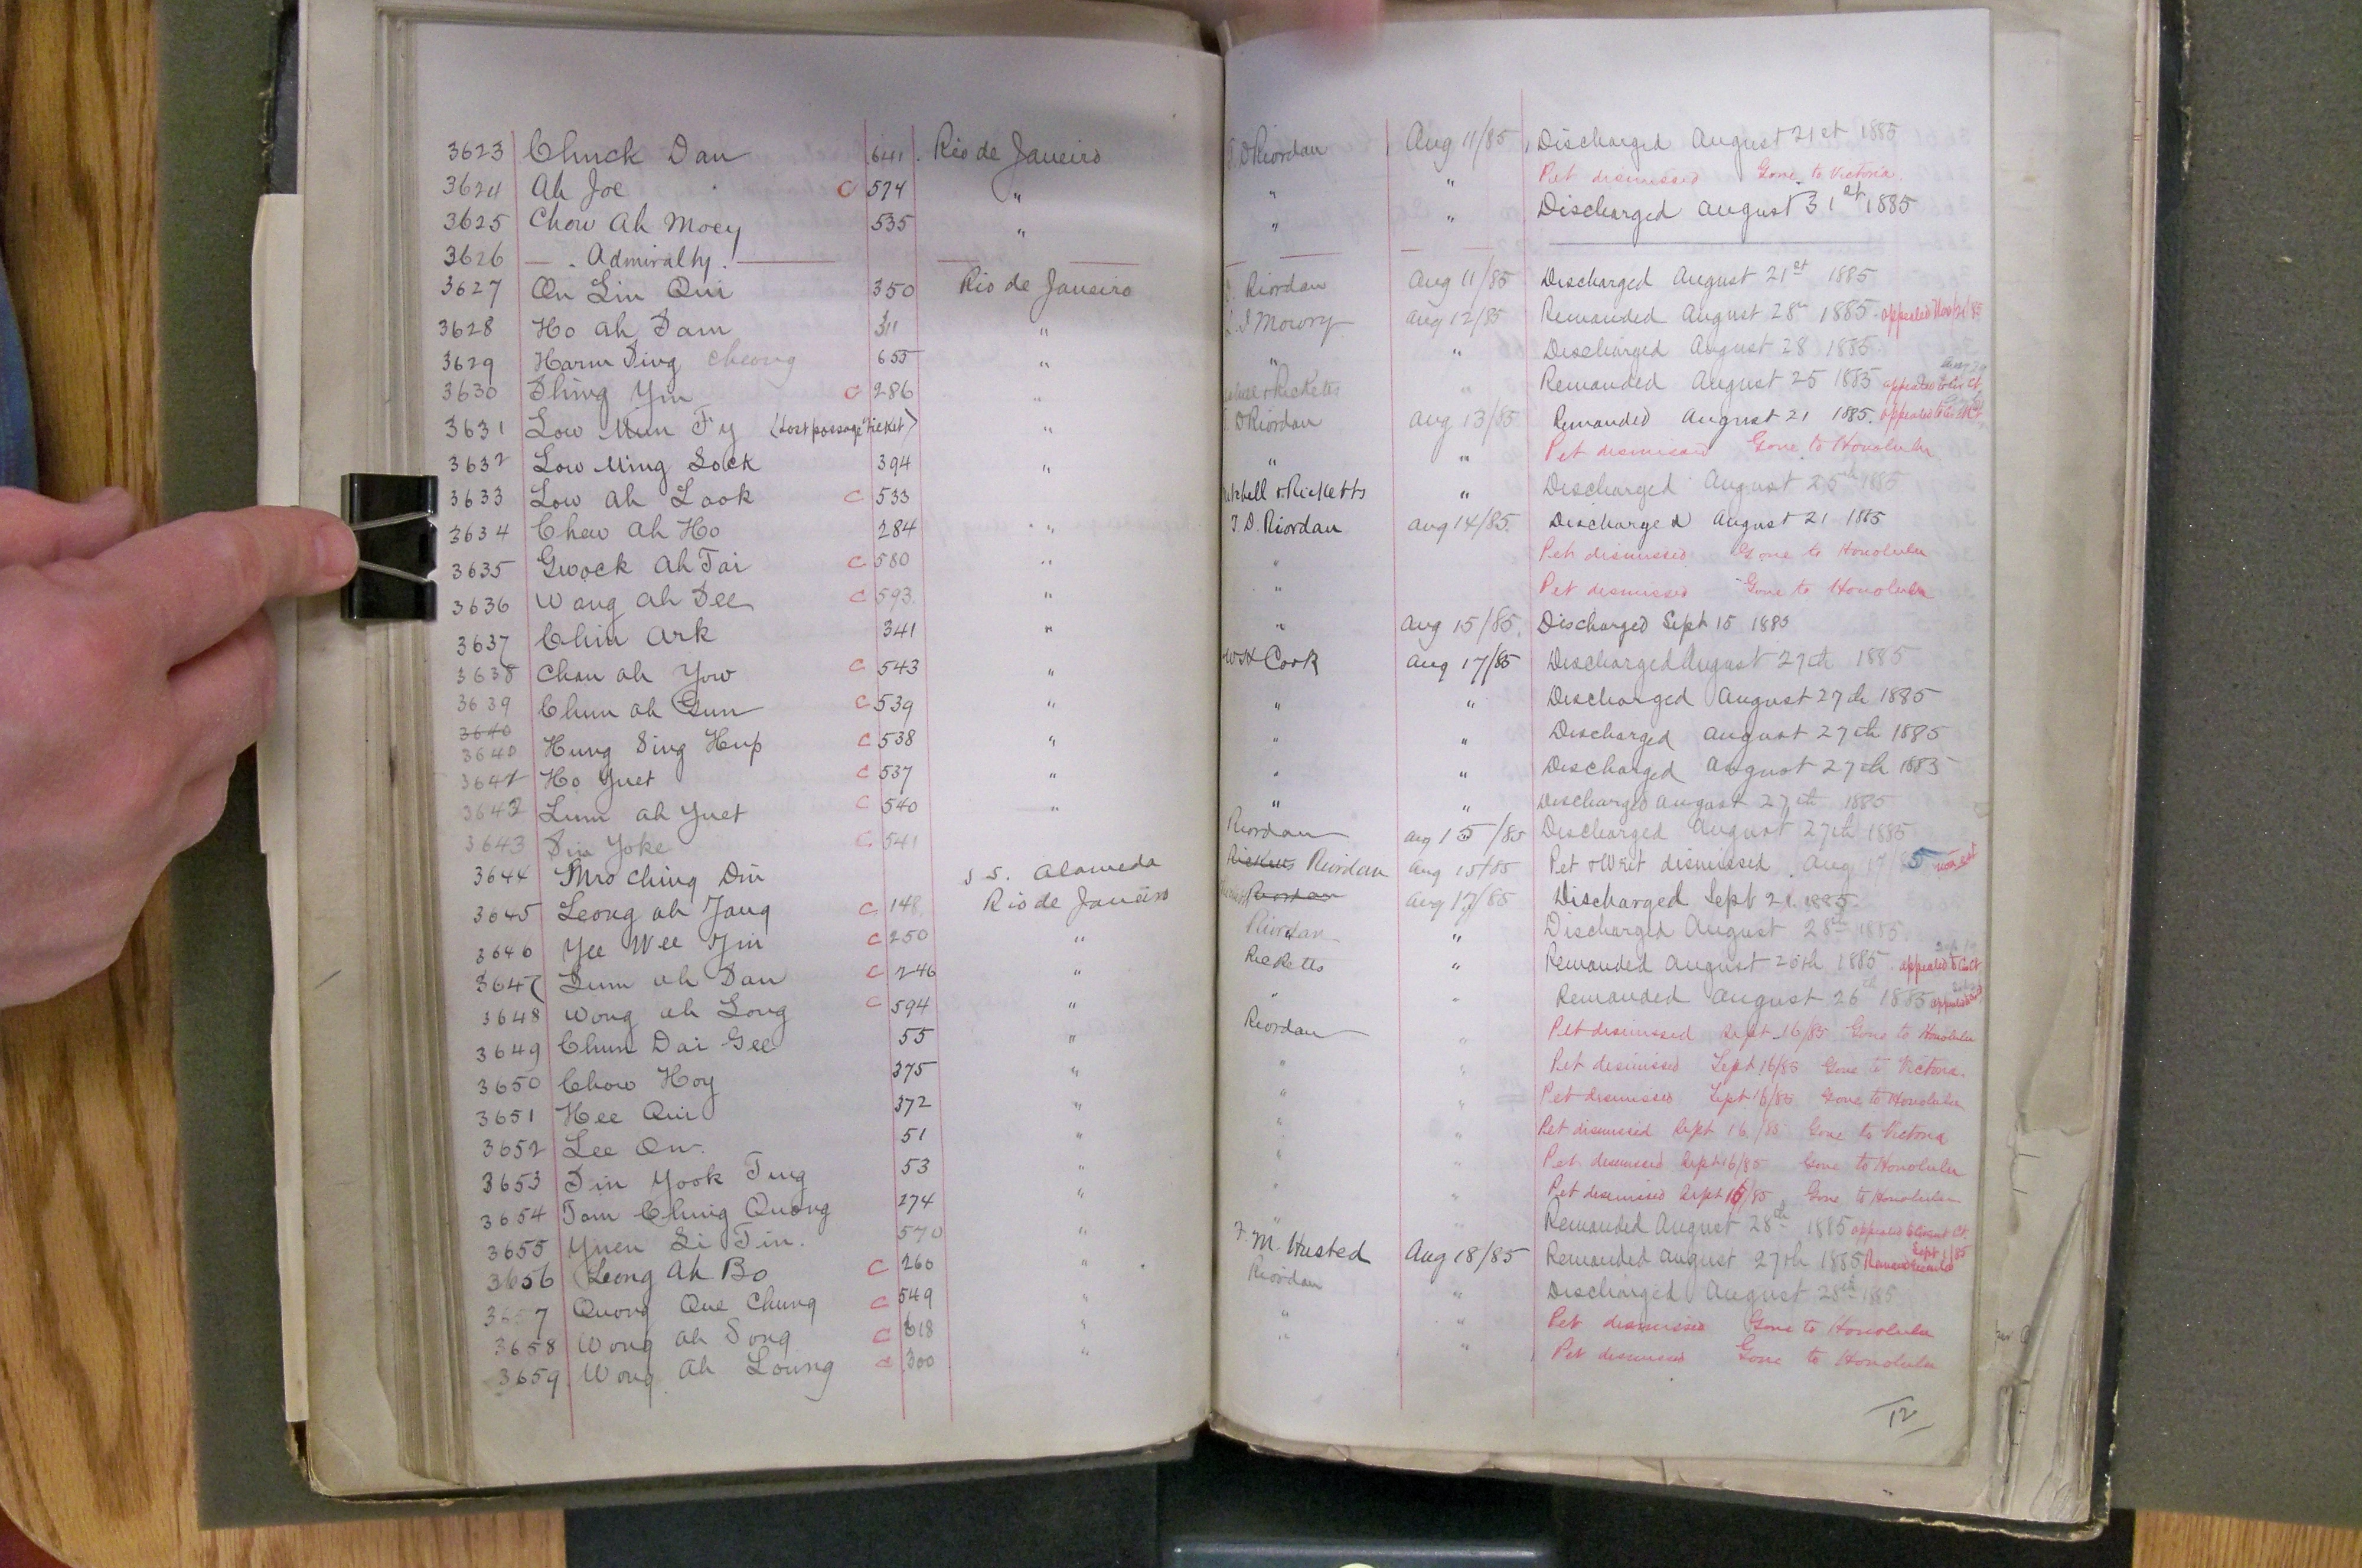 3623 Chuck Dan 641. Rio de Janeiro T. D Riordan Aug 11/85 Discharged August 21st 1885
3624 Ah Joe C 574 " " " Pet dismissed Gone to Victoria.
3625 Chow Ah Moey 535 " " " Discharged August 31st 1885
3626 — . Admiralty. —
3627 On Lin Qui 350 Rio de Janeiro Riordan Aug 11/85 Discharged August 21st 1885
3628 Ho Ah Sam 311 " Mowry Aug 12/85 Remanded August 28th 1885. appealed Nov 21/85
3629 Harm Sing Cheong 655 " " " Discharged August 28 1885
3630 Shing Yin C 286 " & Ricketts " Remanded August 25 1885 appealed to Cir Ct
3631 Low Mun Fy (Lost passage ticket) " T. D Riordan Aug 13/85 Remanded August 21 1885. appealed to Cir Ct
3632 Low Ming Sock 394 " " " Pet dismissed Gone to Honolulu
3633 Low Ah Look C 533 Mitchell & Ricketts " Discharged August 25th 1885
3634 Chew Ah Ho 284 " T. D. Riordan Aug 14/85. Discharged August 21 1885
3635 Gwock Ah Tai C 580 " " Pet dismissed Gone to Honolulu
3636 Wong Ah See C 593. " " Pet dismissed Gone to Honolulu
3637 Chin Ark 341 " " Aug 15/85. Discharged Sept 15 1885
3638 Chan Ah Yow C 543 " W H Cook Aug 17/85 Discharged August 27th 1885
3639 Chun Ah Gun C 539 " " " Discharged August 27th 1885
3640
3640 Hung Sing Hup C 538 " " " Discharged August 27th 1885
3641 Ho Yuet C 537 " " " Discharged August 27th 1885
3642 Lum Ah Yuet C 540 " " " Discharged August 27th 1885
3643 Sin Yoke C 541 Riordan Aug 15/85 Discharged August 27th 1885
3644 Mrs Ching Din S S. Alameda Ricketts Riordan Aug 15/85 Pet & Writ dismissed. Aug 17/85
3645 Leong Ah Yang C 148. Rio de Janeiro Riordan Aug 17/85 Discharged Sept 21. 1885.
3646 Yee Wee Yin C 250 " Riordan " Discharged August 28th 1885.
3647 Sum Ah Dan C 246 " Ricketts " Remanded August 26th 1885. appealed to C. Ct
3648 Wong Ah Long C 594 " " " Remanded August 26th 1885 appealed
3649 Chun Dai Gee 55 " Riordan " Pet dismissed Sept 16/85 Gone to Honolulu
3650 Chow Hoy 375 " " " Pet dismissed Sept 16/85 Gone to Victoria.
3651 Hee Qui 372 " " " Pet dismissed Sept 16/85 Gone to Honolulu
3652 Lee On. 51 " " " Pet dismissed Sept 16/85 Gone to Victoria
3653 Sin Yook Ting 53 " " " Pet dismissed Sept 16/85 Gone to Honolulu
3654 Tom Ching Quong 274 " " " Pet dismissed Sept 16/85 Gone to Honolulu
3655 Yuen Si Tin. 570 " " " Remanded August 28th 1885 appealed to Circuit Ct.
3656 Leong Ah Bo C 260 " F. M. Husted Aug 18/85 Remanded August 27th 1885 Sept 1/85
3657 Quong Que Chung C 549 " Riordan " Discharged August 28th 1885
3658 Wong Ah Song C 618 " " " Pet dismissed Gone to Honolulu
3659 Wong Ah Loung C 300 " " " Pet dismissed Gone to Honolulu
12